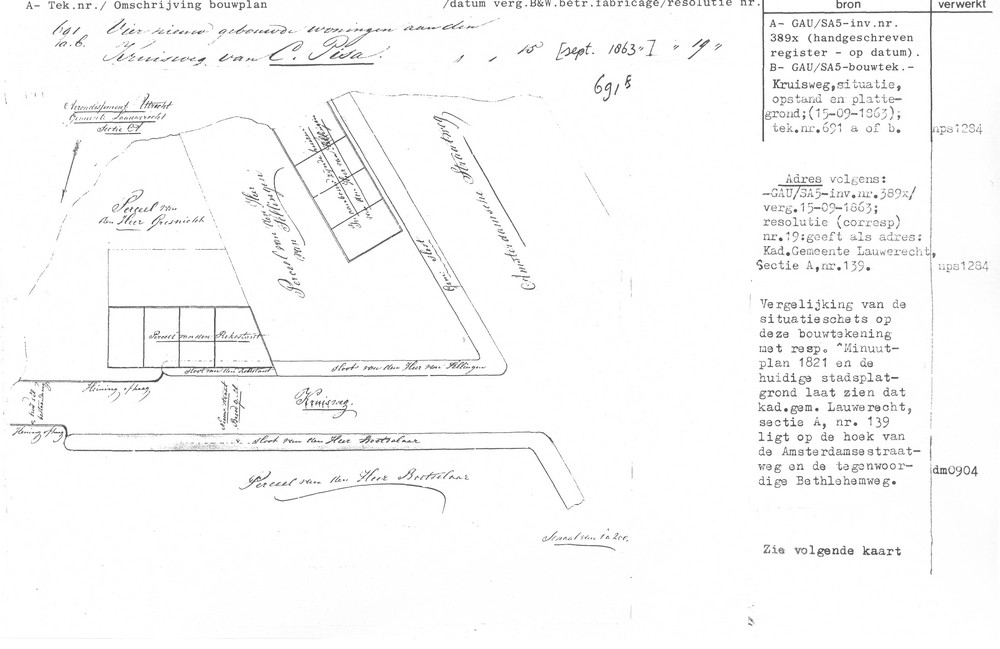 A- Tek.nr./ Omschrijving bouwplan
/datum verg.B&W.betr.fabricage/resolutie nr.
bron
verwerkt
691
a.b.
Vier nieuw gebouwde woningen aan den
Kruisweg van C. Pesa.
15 [sept. 1863"] " 19 "
691B
A- GAU/SA5-inv.nr.
389x (handgeschreven
register - op datum).
B- GAU/SA5-bouwtek.-
Kruisweg,situatie,
opstand en platte-
grond;(15-09-1863);
tek.nr.691 a of b.
nps1284
Adres volgens:
-GAU/SA5-inv.nr.389x/
verg.15-09-1863;
resolutie (corresp)
nr.19:geeft als adres:
Kad.Gemeente Lauwerecht,
Sectie A,nr.139.
nps1284
Vergelijking van de
situatieschets op
deze bouwtekening
met resp. "Minuut-
plan 1821 en de
huidige stadsplat-
grond laat zien dat
kad.gem. Lauwerecht,
sectie A, nr. 139
ligt op de hoek van
de Amsterdamsestraat-
weg en de tegenwoor-
dige Bethlehemweg.
dm0904
Zie volgende kaart
Arrondissement Utrecht
Gemeente Lauwerecht
Sectie A
Perceel van
den Heer
Perceel van den Heer
van Sellingen
Amsterdamsche Straatweg
Perceel van den
Sloot van den
Sloot van den Heer van Sellingen
Heining of heg
Kruisweg.
Heining of heg
Sloot van den Heer Bootselaar
Perceel van den Heer Bootselaar
Schaal van 1 a 200.